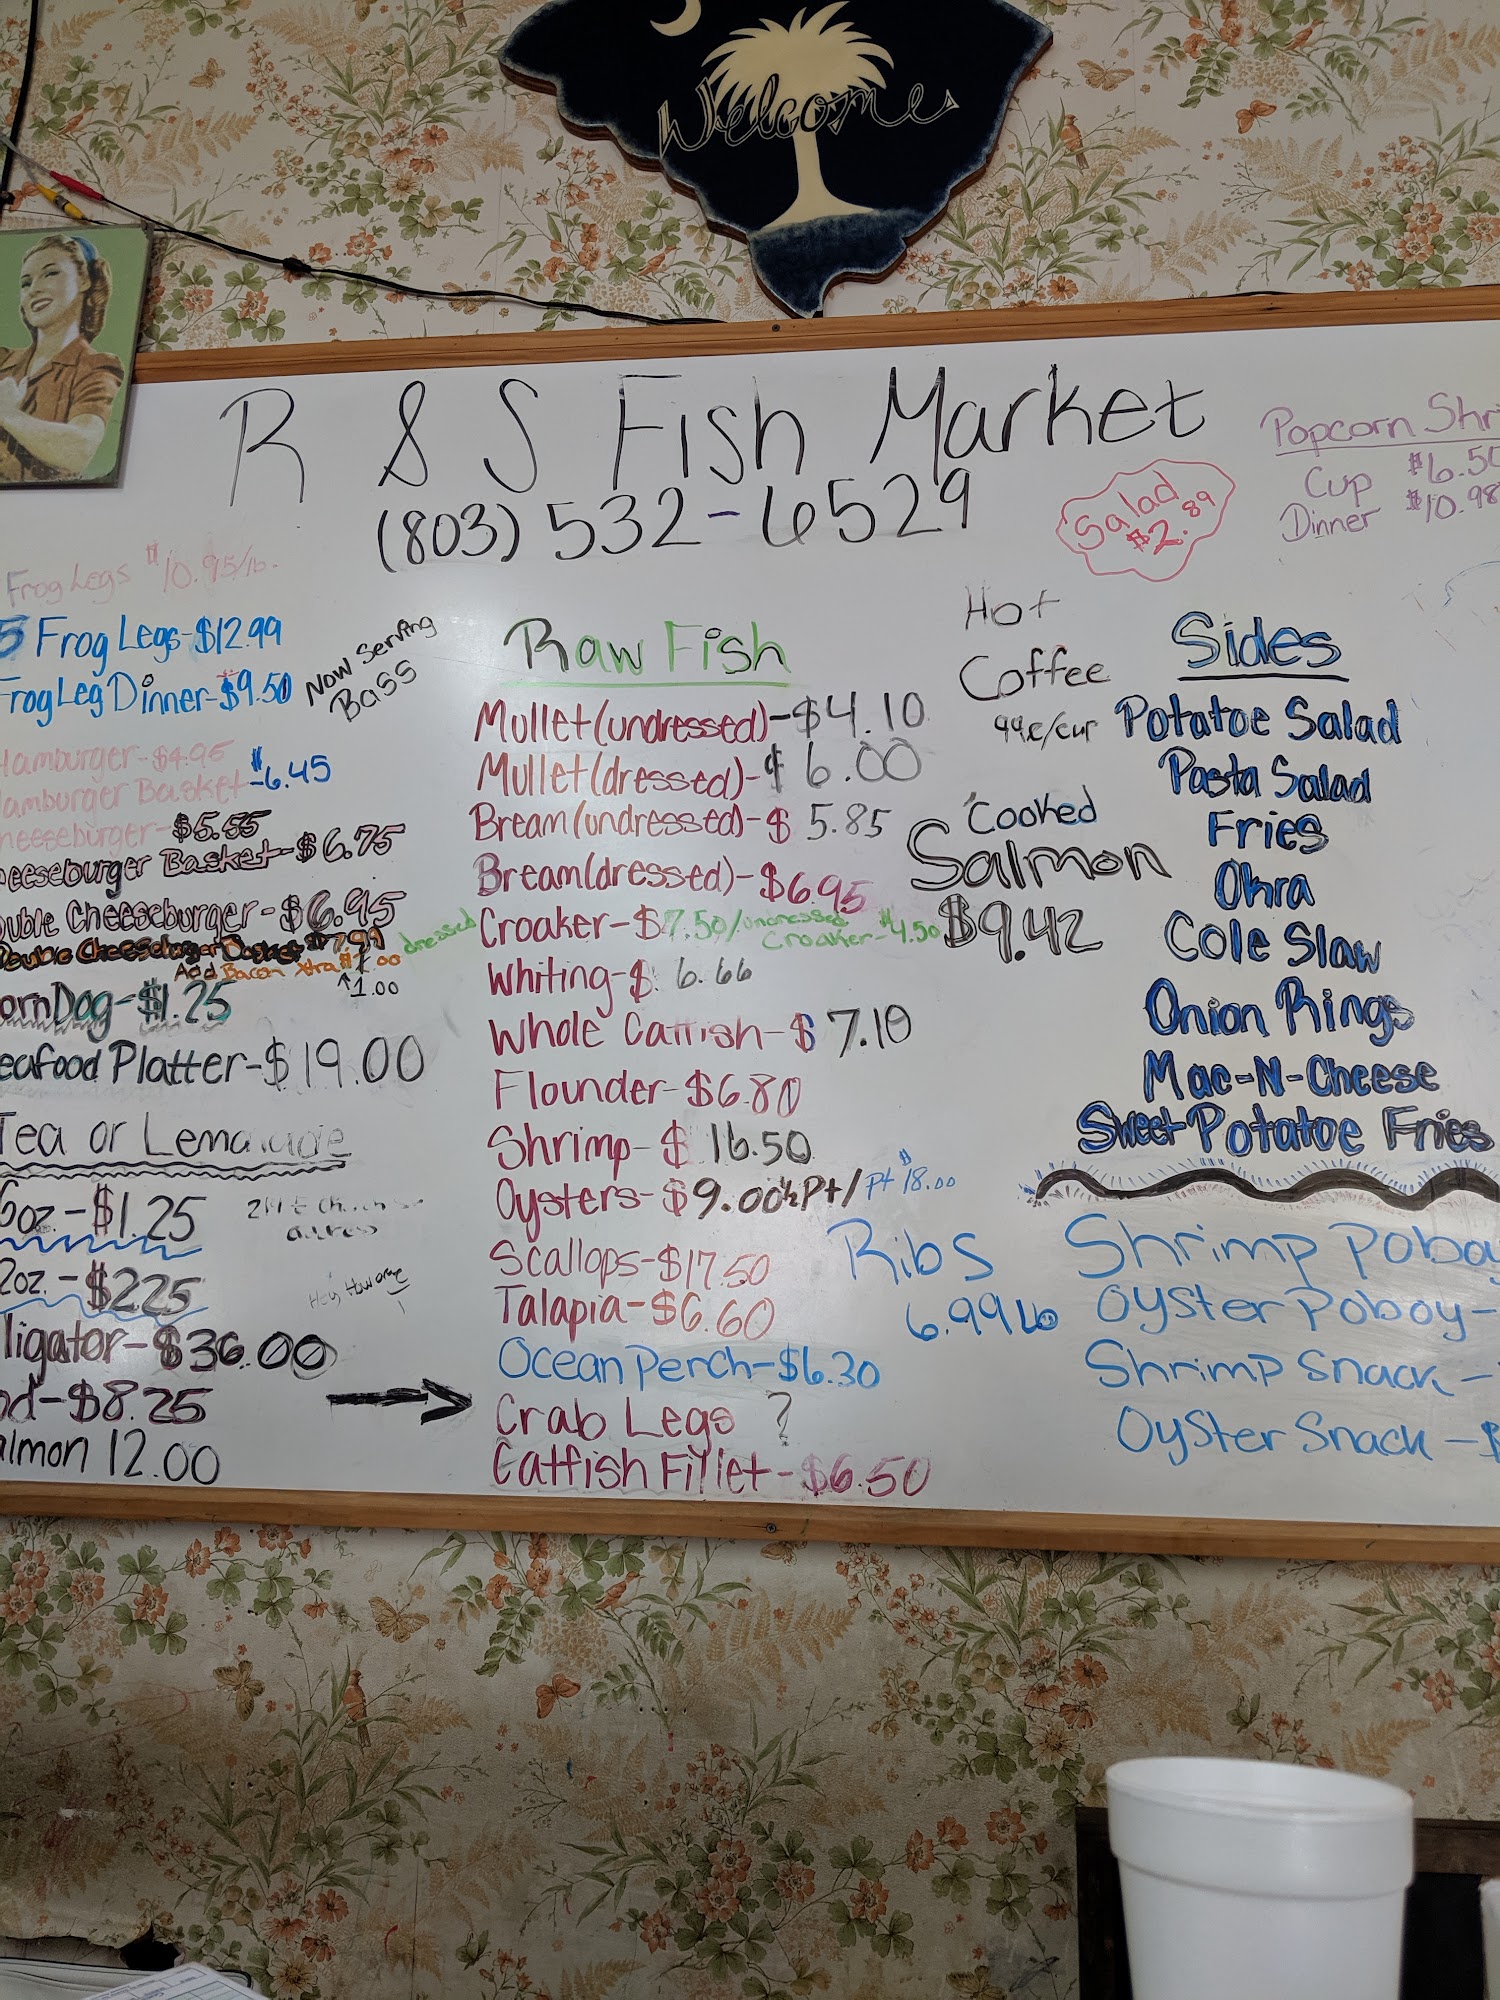 Welcome
R & S Fish Market
(803) 532-6529
Salad
$2.89
Popcorn Shri
Cup $6.50
Dinner $10.98
Frog Legs $10.95/lb.
5 Frog Legs-$12.99
Frog Leg Dinner-$9.50
Now Serving
Bass
Hamburger-$4.95
amburger Basket-$6.45
heeseburger-$5.55
eeseburger Basket-$6.75
ouble Cheeseburger-$6.95
ouble Cheeseburger Basket $7.99
Add Bacon Xtra $1.00
↑1.00
ornDog-$1.25
eafood Platter-$19.00
Tea or Lemonade
6oz.-$1.25
2oz.-$2.25
lligator-$36.00
nd-$8.25
almon 12.00
Raw Fish
Mullet(undressed)-$4.10
Mullet(dressed)-$6.00
Bream(undressed)-$5.85
Bream(dressed)-$6.95
dressed Croaker-$7.50/undressed
Croaker-$4.50
Whiting-$6.66
Whole Catfish-$7.10
Flounder-$6.80
Shrimp-$16.50
Oysters-$9.00½Pt/Pt $18.00
Scallops-$17.50
Talapia-$6.60
Ocean Perch-$6.30
Crab Legs ?
Catfish Fillet-$6.50
Hot
Coffee
99¢/cup
Cooked
Salmon
$9.42
Ribs
6.99 Lb
Sides
Potatoe Salad
Pasta Salad
Fries
Okra
Cole Slaw
Onion Rings
Mac-N-Cheese
Sweet Potatoe Fries
Shrimp Poboy
Oyster Poboy-
Shrimp Snack-
Oyster Snack-$